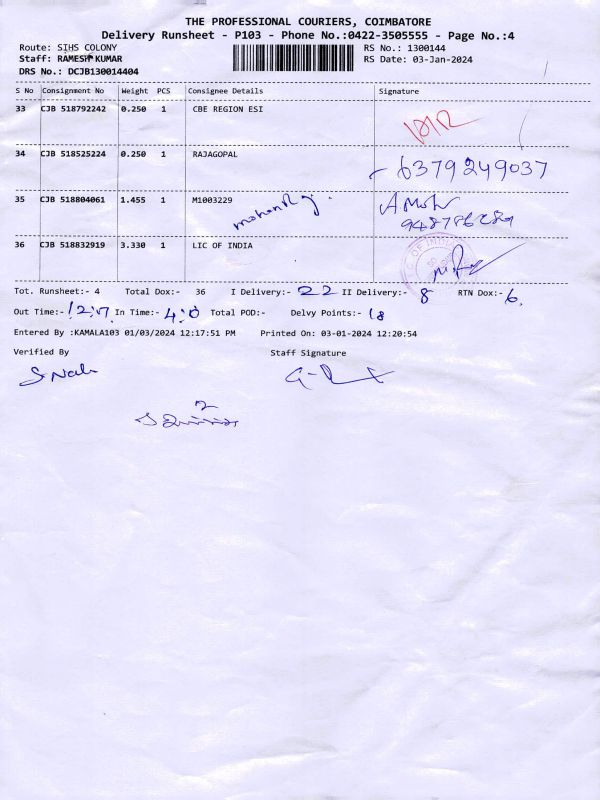 THE PROFESSIONAL COURIERS, COIMBATORE
Delivery Runsheet - P103 - Phone No.:0422-3505555 - Page No.:4
Route: SIHS COLONY RS No.: 1300144
Staff: RAMESH KUMAR RS Date: 03-Jan-2024
DRS No.: DCJB130014404
S No Consignment No Weight PCS Consignee Details Signature
33 CJB 518792242 0.250 1 CBE REGION ESI
34 CJB 518525224 0.250 1 RAJAGOPAL 6379249037
35 CJB 518804061 1.455 1 M1003229
36 CJB 518832919 3.330 1 LIC OF INDIA
Tot. Runsheet:- 4 Total Dox:- 36 I Delivery:- 22 II Delivery:- 8 RTN Dox:- 6
Out Time:- In Time:- Total POD:- Delvy Points:- 18
Entered By :KAMALA103 01/03/2024 12:17:51 PM Printed On: 03-01-2024 12:20:54
Verified By Staff Signature